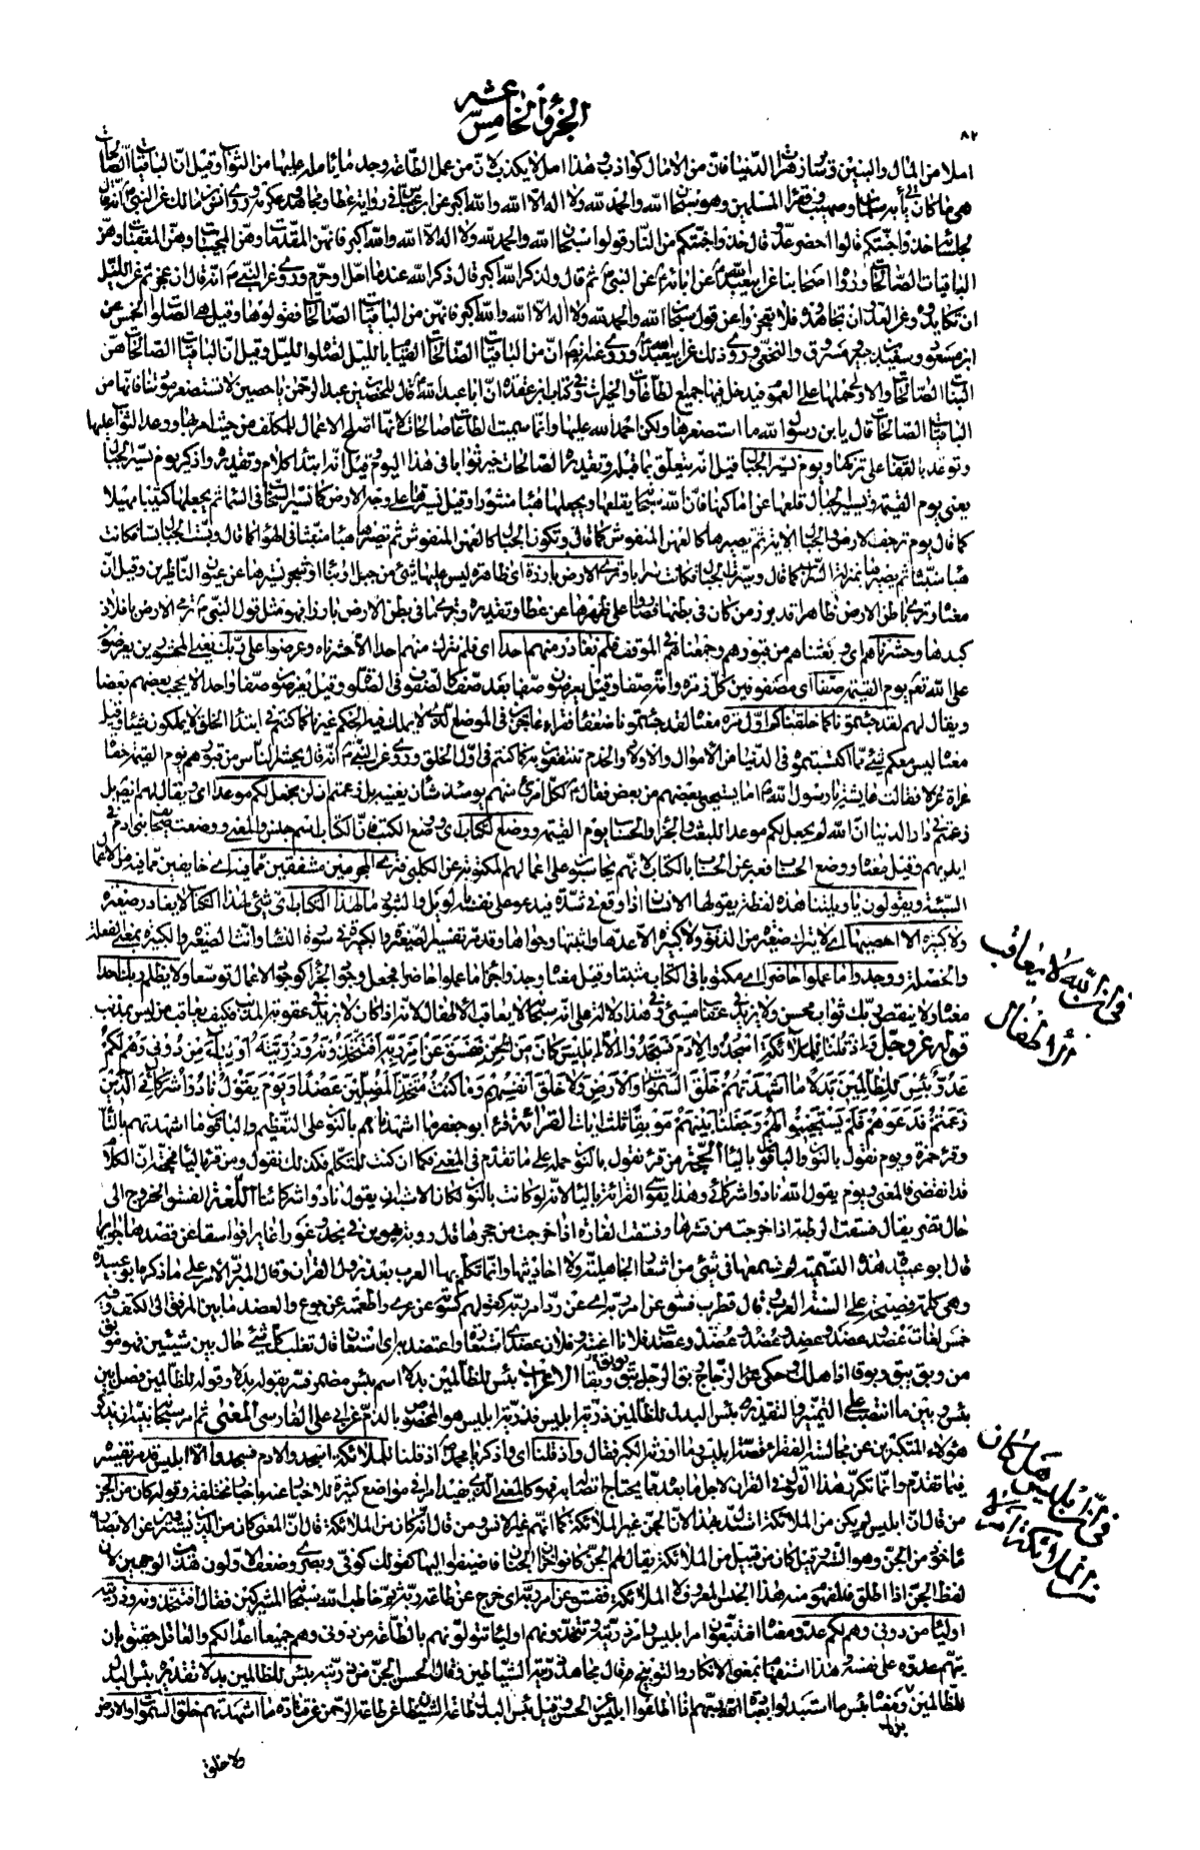 الجزؤ الخامس عشر
٨٢
املا من المال والبنين وساير زهرات الدنيا فان من الامال كواذب وهذا امل لا يكذب لان من عمل الطاعة وجد ما يامله عليها من الثواب وقيل ان الباقيات الصالحات
هي ما كان يأتي به سلمان وصهيب وفقراء المسلمين وهو سبحان الله والحمد لله ولا اله الا الله والله اكبر عن ابن عباس في رواية عطا ومجاهد وعكرمة وروى انس بن مالك عن النبي انه قال
لجلسائه خذوا جنتكم قالوا احضر عدو قال خذوا جنتكم من النار قولوا سبحان الله والحمد لله ولا اله الا الله والله اكبر فانهن المقدمات وهن المجيبات وهن المعقبات وهن
الباقيات الصالحات ورواه اصحابنا عن ابي عبد الله عن ابائه عن النبي ثم قال ولذكر الله اكبر قال ذكر الله عند ما احل او حرم وروي عن النبي انه قال ان عجزتم عن الليل
ان تكابدوه وعن العدو ان تجاهدوه فلا تعجزوا عن قول سبحان الله والحمد لله ولا اله الا الله والله اكبر فانهن من الباقيات الصالحات فقولوها وقيل هي الصلوات الخمس عن
ابن مسعود وسعيد بن جبير ومسروق والنخعي وروي ذلك عن ابي عبد الله وروي عنه ايضا ان من الباقيات الصالحات القيام بالليل لصلوة الليل وقيل ان الباقيات الصالحات هن
البنات الصالحات والاولى حملها على العموم فيدخل فيها جميع الطاعات والخيرات وفي كتاب ابن عقدة ان ابا عبد الله قال للحصين بن عبد الرحمن يا حصين لا تستصغر مودتنا فانها من
الباقيات الصالحات قال يا بن رسول الله ما استصغرها ولكن احمد الله عليها وانما سميت الطاعات صالحات لانها اصلح الاعمال للمكلف من حيث امر بها ووعد الثواب عليها
وتوعد بالعقاب على تركها ويوم نسير الجبال قيل انه يتعلق بما قبله وتقديره الصالحات خير ثوابا في هذا اليوم وقيل انه ابتدا كلام وتقديره واذكر يوم نسير الجبال
يعني يوم القيمة وتسيير الجبال قلعها عن اماكنها فان الله سبحانه يقلعها ويجعلها هباء منثورا وقيل نسيرها على وجه الارض كما نسير السحاب في السماء ثم يجعلها كثيبا مهيلا
كما قال يوم ترجف الارض والجبال الاية ثم يصيرها كالعهن المنفوش كما قال وتكون الجبال كالعهن المنفوش ثم تصير هباء منبثا في الهواء كما قال وبست الجبال بسا فكانت
هباء منبثا ثم يصير بمنزلة السراب كما قال وسيرت الجبال فكانت سرابا وترى الارض بارزة اي ظاهرة ليس عليها شئ من جبل او بناء او شجر يسترها عن عيون الناظرين وقيل ان
معناه وترى باطن الارض ظاهرا قد برز من كان في بطنها فصاروا على ظهرها عن عطا وتقديره وترى ما في بطن الارض بارزا فهو مثل قول النبي ترمي الارض بافلاذ
كبدها وحشرناهم اي وبعثناهم من قبورهم وجمعناهم في الموقف فلم نغادر منهم احدا اي فلم نترك منهم احدا الا حشرناه وعرضوا على ربك يعني المحشورين يعرضون
على الله تعم يوم القيمة صفا اي مصفوفين كل زمرة وامة صفا وقيل يعرضون صفا بعد صف كالصفوف في الصلوة وقيل يعرضون صفا واحدا لا يحجب بعضهم بعضا
ويقال لهم لقد جئتمونا كما خلقناكم اول مرة معناه لقد جئتمونا ضعفاء فقراء عاجزين في الموضع الذي لا يملك فيه الحكم غيرنا كما كنتم في ابتداء الخلق لا يملكون شيئا وقيل
معناه ليس معكم شئ مما اكتسبتموه في الدنيا من الاموال والاولاد والخدم تنتفعون به كما كنتم في اول الخلق وروي عن النبي انه قال يحشر الناس من قبورهم يوم القيمة حفاة
عراة غرلا فقالت عايشة يا رسول الله اما يستحيي بعضهم من بعض فقال لكل امرئ منهم يومئذ شان يغنيه بل زعمتم ان لن نجعل لكم موعدا اي ويقال لهم ايضا بل
زعمتم في دار الدنيا ان الله لم يجعل لكم موعدا للبعث والجزاء والحساب يوم القيمة ووضع الكتاب اي ووضع الكتب فان الكتاب اسم جنس والمعنى ووضعت صحايف بني ادم في
ايديهم وقيل معناه ووضع الحساب فعبر عن الحساب بالكتاب لانهم يحاسبون على اعمالهم المكتوبة عن الكلبي فترى المجرمين مشفقين مما فيه اي خايفين مما فيه من الاعمال
السيئة ويقولون يا ويلتنا هذه لفظة يقولها الانسان اذا وقع في شدة فيدعو على نفسه بالويل والثبور ما لهذا الكتاب اي شئ لهذا الكتاب لا يغادر صغيرة
ولا كبيرة الا احصيها اي لا يترك صغيرة من الذنوب ولا كبيرة الا عدها واثبتها وحواها وقد مر تفسير الصغيرة والكبيرة في سورة النساء وانث الصغيرة والكبيرة بمعنى الفعلة
والخصلة ووجدوا ما عملوا حاضرا اي مكتوبا في الكتاب مثبتا وقيل معناه وجدوا جزاء ما عملوا حاضرا فجعل وجود الجزاء كوجود الاعمال توسعا ولا يظلم ربك احدا
معناه ولا ينقص ربك ثواب محسن ولا يزيد في عقاب مسئ وفي هذا دلالة على انه سبحانه لا يعاقب الاطفال لانه اذا كان لا يزيد في عقوبة المذنب فكيف يعاقب من ليس بمذنب
قوله عز وجل واذ قلنا للملائكة اسجدوا لادم فسجدوا الا ابليس كان من الجن ففسق عن امر ربه افتتخذونه وذريته اولياء من دوني وهم لكم
عدو بئس للظالمين بدلا ما اشهدتهم خلق السموات والارض ولا خلق انفسهم وما كنت متخذ المضلين عضدا ويوم يقول نادوا شركائي الذين
زعمتم فدعوهم فلم يستجيبوا لهم وجعلنا بينهم موبقا ثلث ايات القرائة قرء ابو جعفر ما اشهدناهم بالنون على التعظيم والباقون ما اشهدتهم بالتاء
وقرء حمزة ويوم نقول بالنون والباقون بالياء الحجة من قرء نقول بالنون حمله على ما تقدم في المعنى فكما ان كنت للمتكلم فكذلك نقول ومن قرء بالياء فحجته ان الكلام
قد انقضى فالمعنى ويوم يقول الله نادوا شركائي وهذا يقوي القرائة بالياء لانه لو كانت بالنون لكان الاشبه ان يقول نادوا شركاءنا اللغة الفسق الخروج الى
حال تضر يقال فسقت الرطبة اذا خرجت من قشرها وفسقت الفارة اذا خرجت من حجرها قال رؤبة يهوين في نجد وغورا غايرا فواسقا عن قصدها جوايرا
قال ابو عبيدة هذه التسمية لم نسمعها في شئ من اشعار الجاهلية ولا احاديثها وانما تكلم بها العرب بعد نزول القران وقال المبرد الامر على ما ذكره ابو عبيدة
وهي كلمة فصيحة على السنة العرب قال قطرب فسق عن امر ربه اي عن رده امر ربه كقولهم كسوته عن عرى واطعمته عن جوع والعضد ما بين المرفق الى الكتف وفيه
خمس لغات عضد وعضد وعضد وعضد وعضد وعضدت فلانا اعنته وفلان عضدي استعارة واعتضد به اي استعان قال ثعلب كل شئ حال بين شيئين فهو موبق
من وبق يبق وبوقا اذا هلك وحكى عن الزجاج وبق الرجل يوبق وبقا الاعراب بئس للظالمين بدلا اسم بئس مضمر فسر بقوله بدلا وقوله للظالمين فصل بين
بئس وبين ما انتصب على التمييز والتقدير بئس البدل للظالمين ذرية ابليس فذرية ابليس هو المخصوص بالذم عن ابي علي الفارسي المعنى ثم امر سبحانه نبيه ان يذكر
هؤلاء المتكبرين عن مجالسة الفقراء قصة ابليس وما اورثه الكبر فقال واذ قلنا اي واذكر يا محمد اذ قلنا للملائكة اسجدوا لادم فسجدوا الا ابليس قد مر تفسيره
فيما تقدم وانما تكرر هذا القول في القران لاجل ما بعده مما يحتاج اتصاله به فهو كالمعنى الذي يفيد امرا في مواضع كثيرة للاخبار عنه باخبار مختلفة وقوله كان من الجن
من قال ان ابليس لم يكن من الملائكة استدل بهذا لان الجن غير الملائكة كما انهم غير الانس ومن قال انه كان من الملائكة قال ان المعنى كان من الذين يستترون عن الابصار
ماخوذ من الجن وهو الستر وقيل كان من قبيل من الملائكة يقال لهم الجن كانوا خزان الجنان فاضيفوا اليها كقولك كوفي وبصري وضعف الاولون هذين الوجهين لان
لفظ الجن اذا اطلق فالمفهوم منه هذا الجنس المعروف لا الملائكة ففسق عن امر ربه اي خرج عن طاعة ربه ثم خاطب الله سبحانه المشركين فقال افتتخذونه وذريته
اولياء من دوني وهم لكم عدو ومعناه افتتبعون امر ابليس وامر ذريته وتتخذونهم اولياء تتولونهم بالطاعة من دوني وهم جميعا اعداء لكم والعاقل حقيق بان
يتهم عدوه على نفسه وهذا استفهام بمعنى الانكار والتوبيخ وقال مجاهد ذريته الشياطين وقال الحسن الجن من ذريته بئس للظالمين بدلا تقديره بئس البدل
للظالمين بدلا ومعناه بئس ما استبدلوا بعبادة ربهم اذا اطاعوا ابليس عن الحسن وقيل بئس البدل طاعة الشيطان عن طاعة الرحمن عن قتادة ما اشهدتهم خلق السموات والارض
ولا خلق
في ان الله لا يعاقب
الاطفال
في ان ابليس هل كان
من الملائكة ام لا